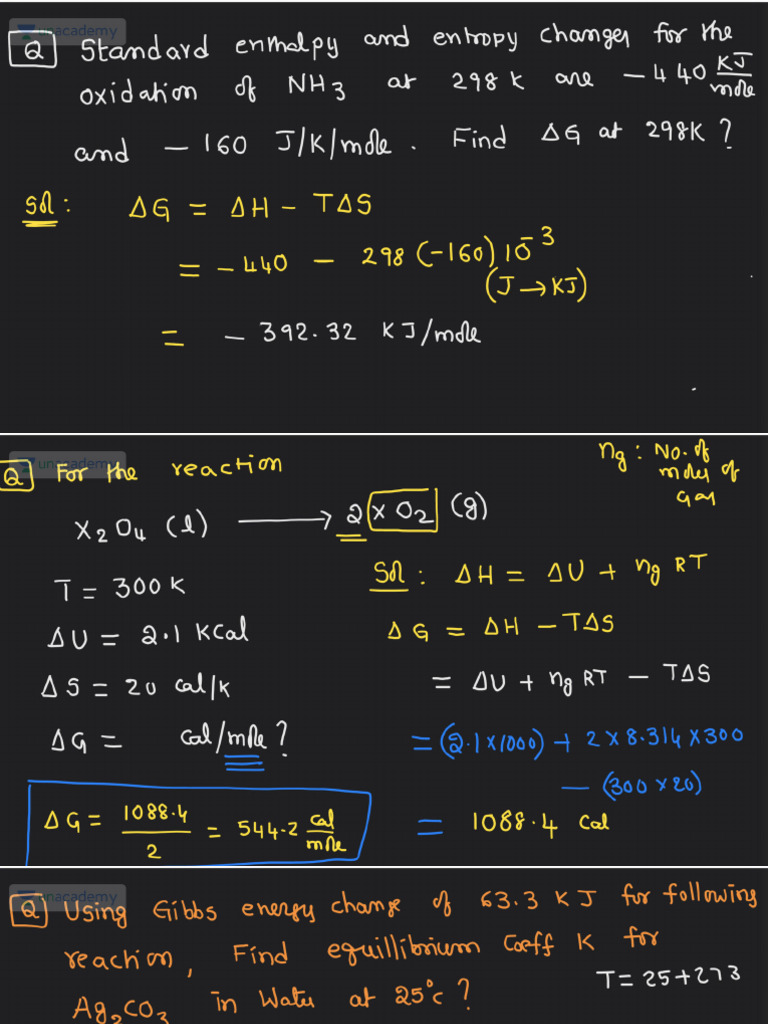 unacademy
Q Standard enthalpy and entropy changes for the
oxidation of NH3 at 298 K are -440 KJ/mole
and - 160 J/K/mole. Find ΔG at 298K?
Sol: ΔG = ΔH - TΔS
= -440 - 298 (-160) 10^-3
(J → KJ)
= - 392.32 KJ/mole
unacademy
Q For the reaction
ng: No. of
moles of
Gas
X2O4 (l) → 2 XO2 (g)
T = 300 K
ΔU = 2.1 KCal
ΔS = 20 Cal/K
ΔG = Cal/mole?
Sol: ΔH = ΔU + ng RT
ΔG = ΔH - TΔS
= ΔU + ng RT - TΔS
= (2.1 x 1000) + 2 x 8.314 x 300
- (300 x 20)
= 1088.4 Cal
ΔG = 1088.4/2 = 544.2 cal/mole
unacademy
Q Using Gibbs energy change of 63.3 KJ for following
reaction, Find equillibrium Coeff K for
Ag2CO3 in Water at 25°C?
T = 25+273